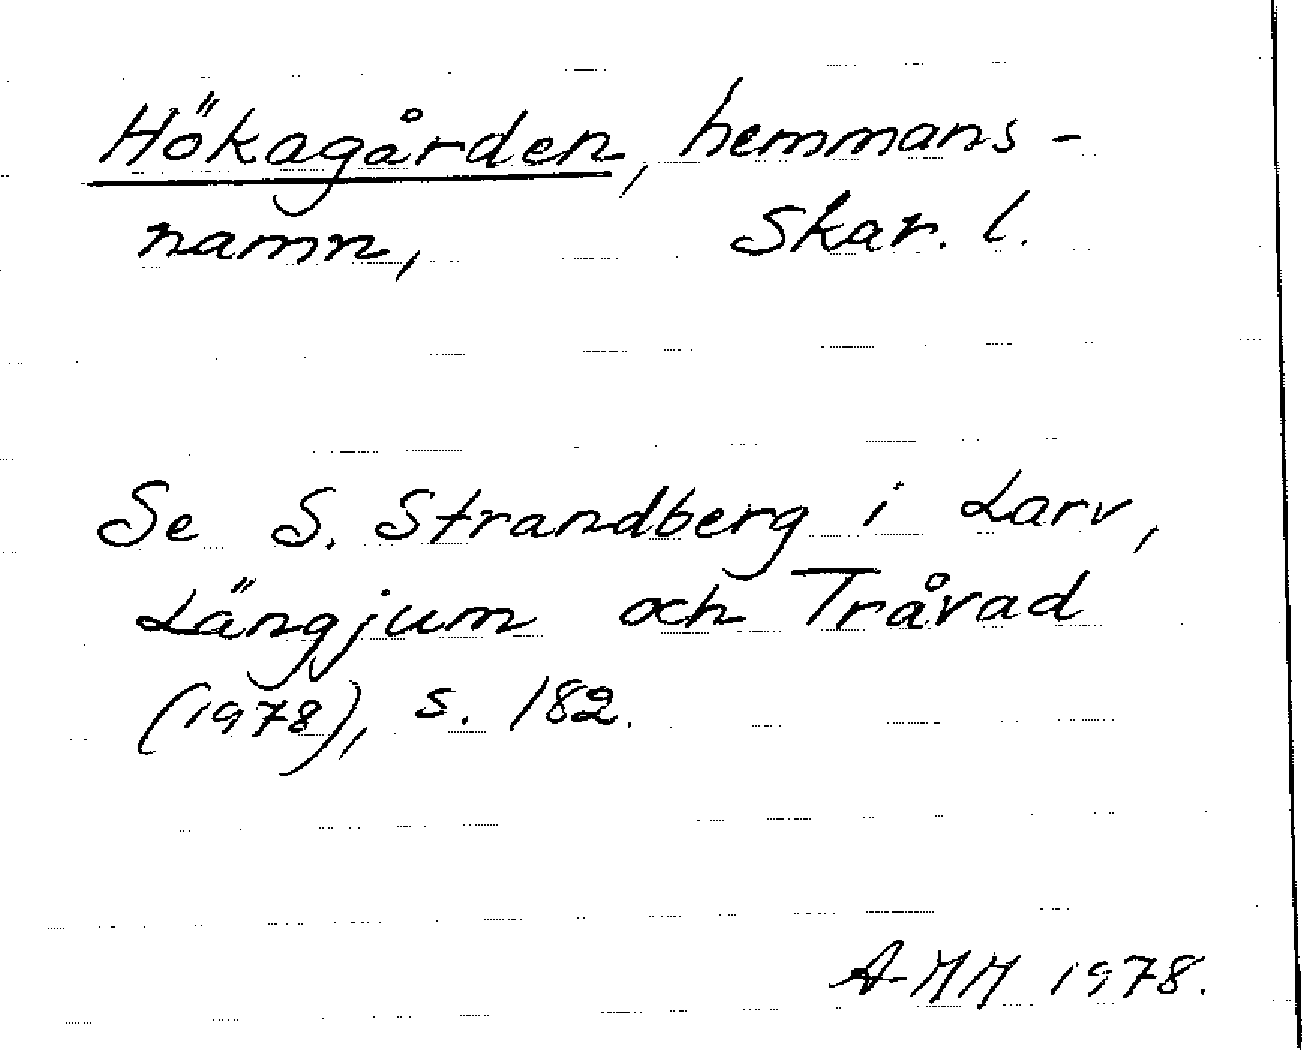 Hökagården, hemmans-
namn, Skar. l.
Se S. Strandberg i Larv,
Längjum och Tråvad
(1978), s. 182.
AHH 1978.